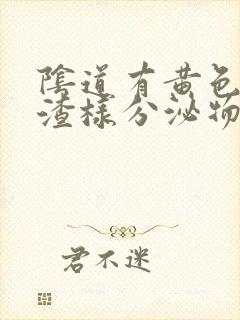 陰道有黄色
渣樣分泌物
君不迷